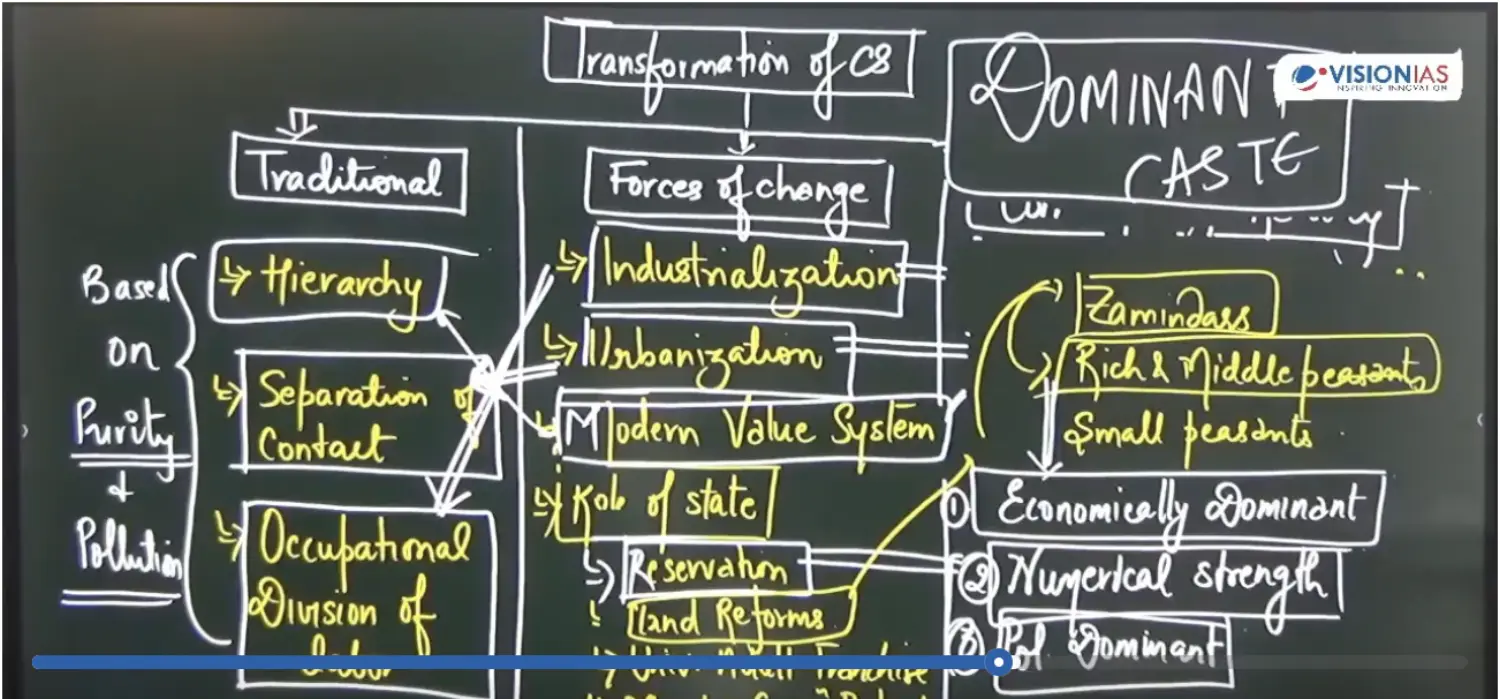 Transformation of CS
DOMINANT
CASTE
VISIONIAS
INSPIRING INNOVATION
Traditional
Based
on
Purity
+
Pollution
↳ Hierarchy
↳ Separation of
Contact
↳ Occupational
Division of
labor
Forces of change
↳ Industrialization
↳ Urbanization
↳ Modern Value System
↳ Role of state
↳ Reservation
↳ Land Reforms
↳ Univ. Adult Franchise
Zamindars
Rich & Middle peasants
Small peasants
① Economically Dominant
② Numerical strength
③ Pol Dominant